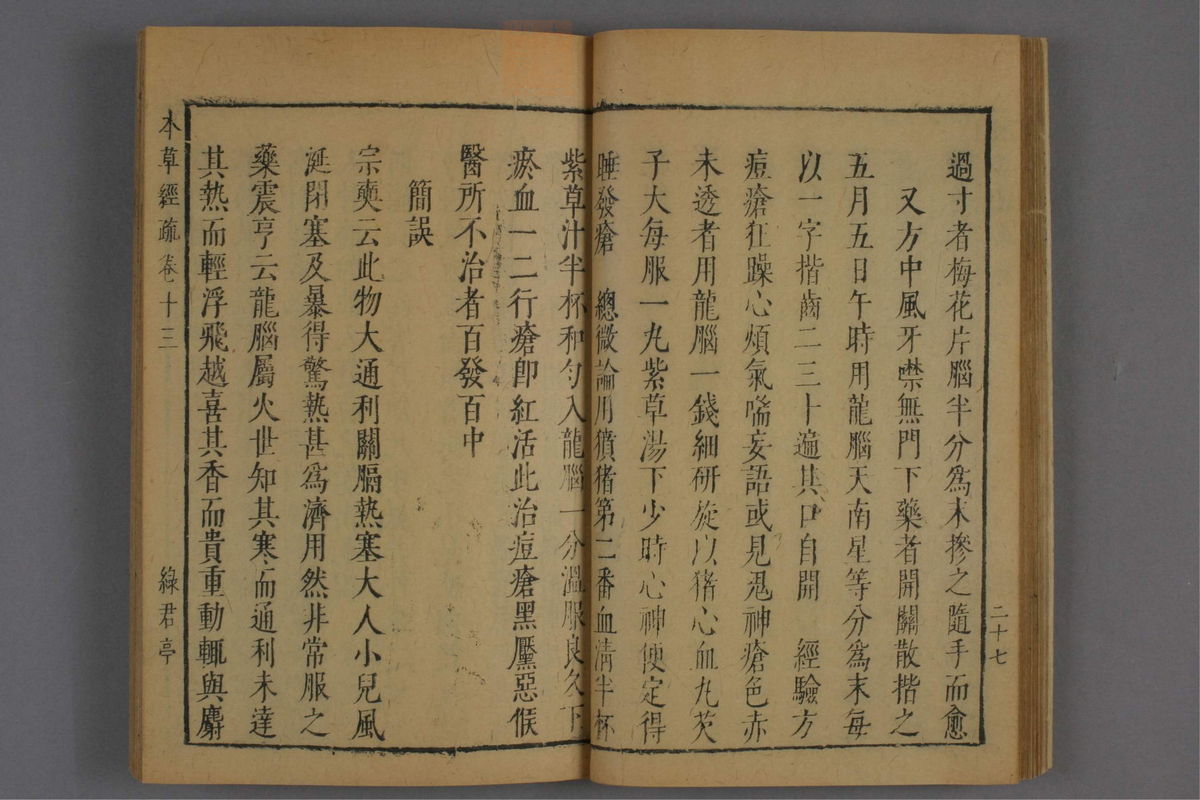 過寸者梅花片腦半分爲末摻之隨手而愈
又方中風牙噤無門下藥者開關散揩之
五月五日午時用龍腦天南星等分爲末每
以一字揩齒二三十遍其口自開　經驗方
痘瘡狂躁心煩氣喘妄語或見鬼神瘡色赤
未透者用龍腦一錢細研旋以猪心血丸芡
子大每服一丸紫草湯下少時心神便定得
睡發瘡　總微論用獖猪第二番血淸半杯
紫草汁半杯和勻入龍腦一分溫服良久下
瘀血一二行瘡卽紅活此治痘瘡黑黶惡候
醫所不治者百發百中
簡誤
宗奭云此物大通利關膈熱塞大人小兒風
涎閉塞及暴得驚熱甚爲濟用然非常服之
藥震亨云龍腦屬火世知其寒而通利未達
其熱而輕浮飛越喜其香而貴重動輒與麝
本草經疏　卷十三　綠君亭
二十七